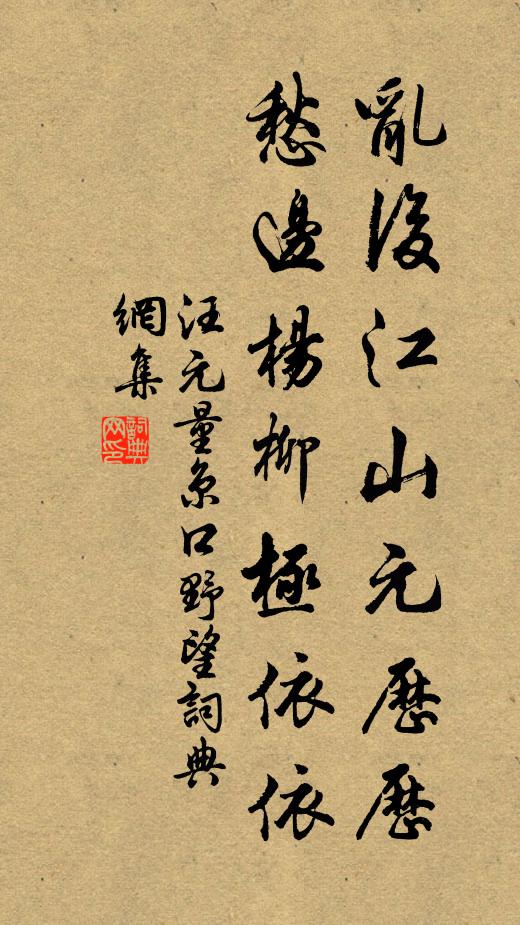 亂後江山元歷歷
愁邊楊柳極依依
汪元量京口野望詞典
網集
詞典
网印